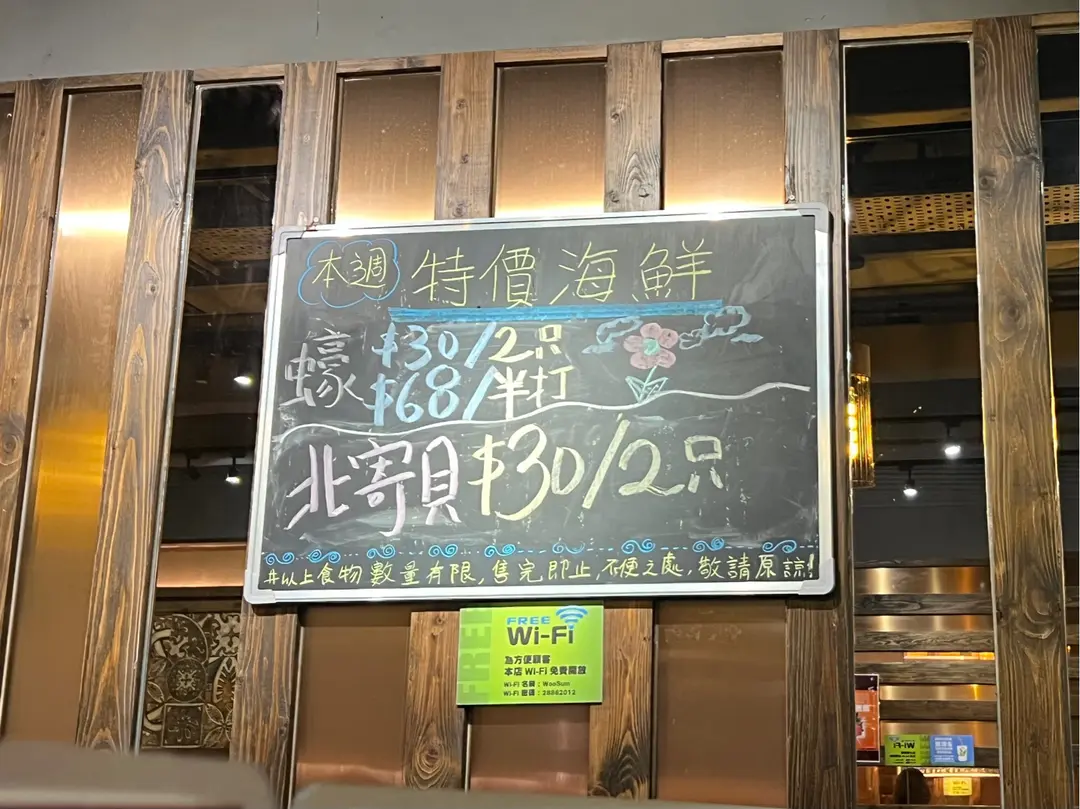 本週 特價海鮮
蠔 $30/2只
$68/半打
北寄貝 $30/2只
#以上食物數量有限,售完即止,不便之處,敬請原諒!
FREE
FREE
Wi-Fi
為方便顧客
本店 Wi-Fi 免費開放
Wi-Fi 名稱:WooSum
Wi-Fi 密碼:28862012